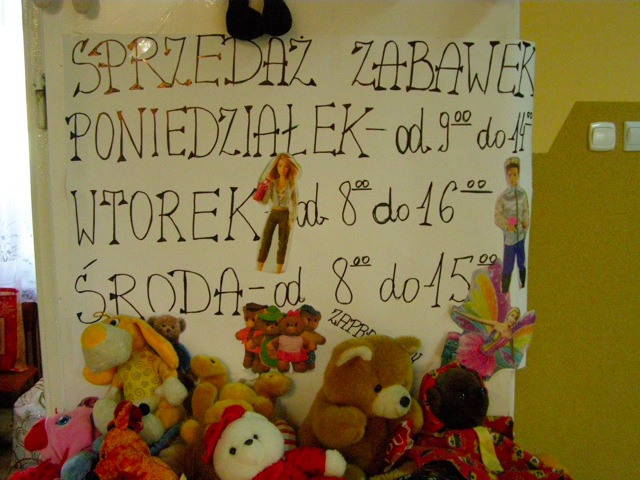 SPRZEDAŻ ZABAWEK
PONIEDZIAŁEK - od 9⁰⁰ do 14⁰⁰
WTOREK od 8⁰⁰ do 16⁰⁰
ŚRODA - od 8⁰⁰ do 15⁰⁰